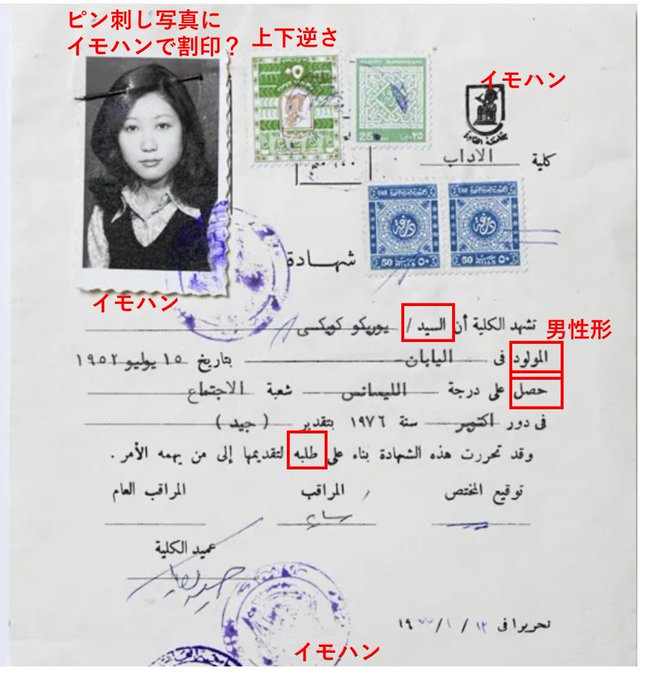 ピン刺し写真に
イモハンで割印？
上下逆さ
イモハン
كلية الآداب
شهادة
イモハン
تشهد الكلية أن السيد / يوريكو كويكى
男性形
المولود فى اليابان بتاريخ ١٥ يوليو ١٩٥٢
حصل على درجة الليسانس شعبة الاجتماع
فى دور أكتوبر سنة ١٩٧٦ بتقدير ( جيد )
وقد تحررت هذه الشهادة بناء على طلبه لتقديمها إلى من يهمه الأمر .
توقيع المختص المراقب المراقب العام
عميد الكلية
イモハン
تحريرا فى